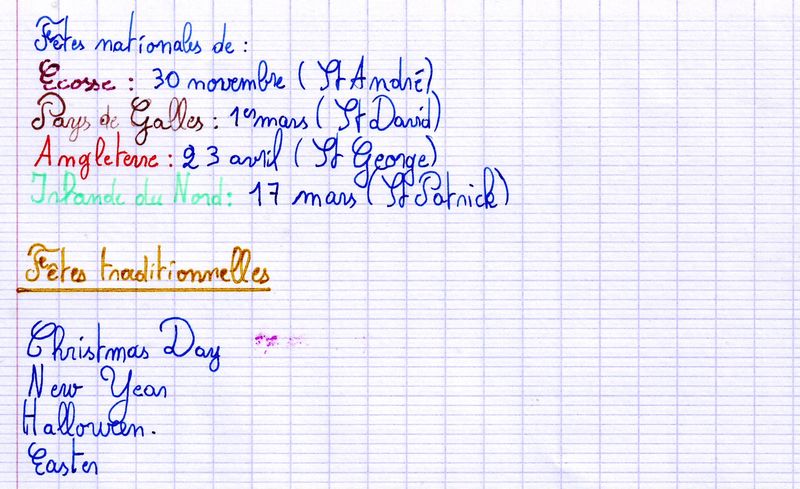 Fêtes nationales de :
Ecosse : 30 novembre ( St André)
Pays de Galles : 1er mars ( St David)
Angleterre : 23 avril ( St George)
Irlande du Nord : 17 mars ( St Patrick)
Fêtes traditionnelles
Christmas Day
New Year
Halloween.
Easter